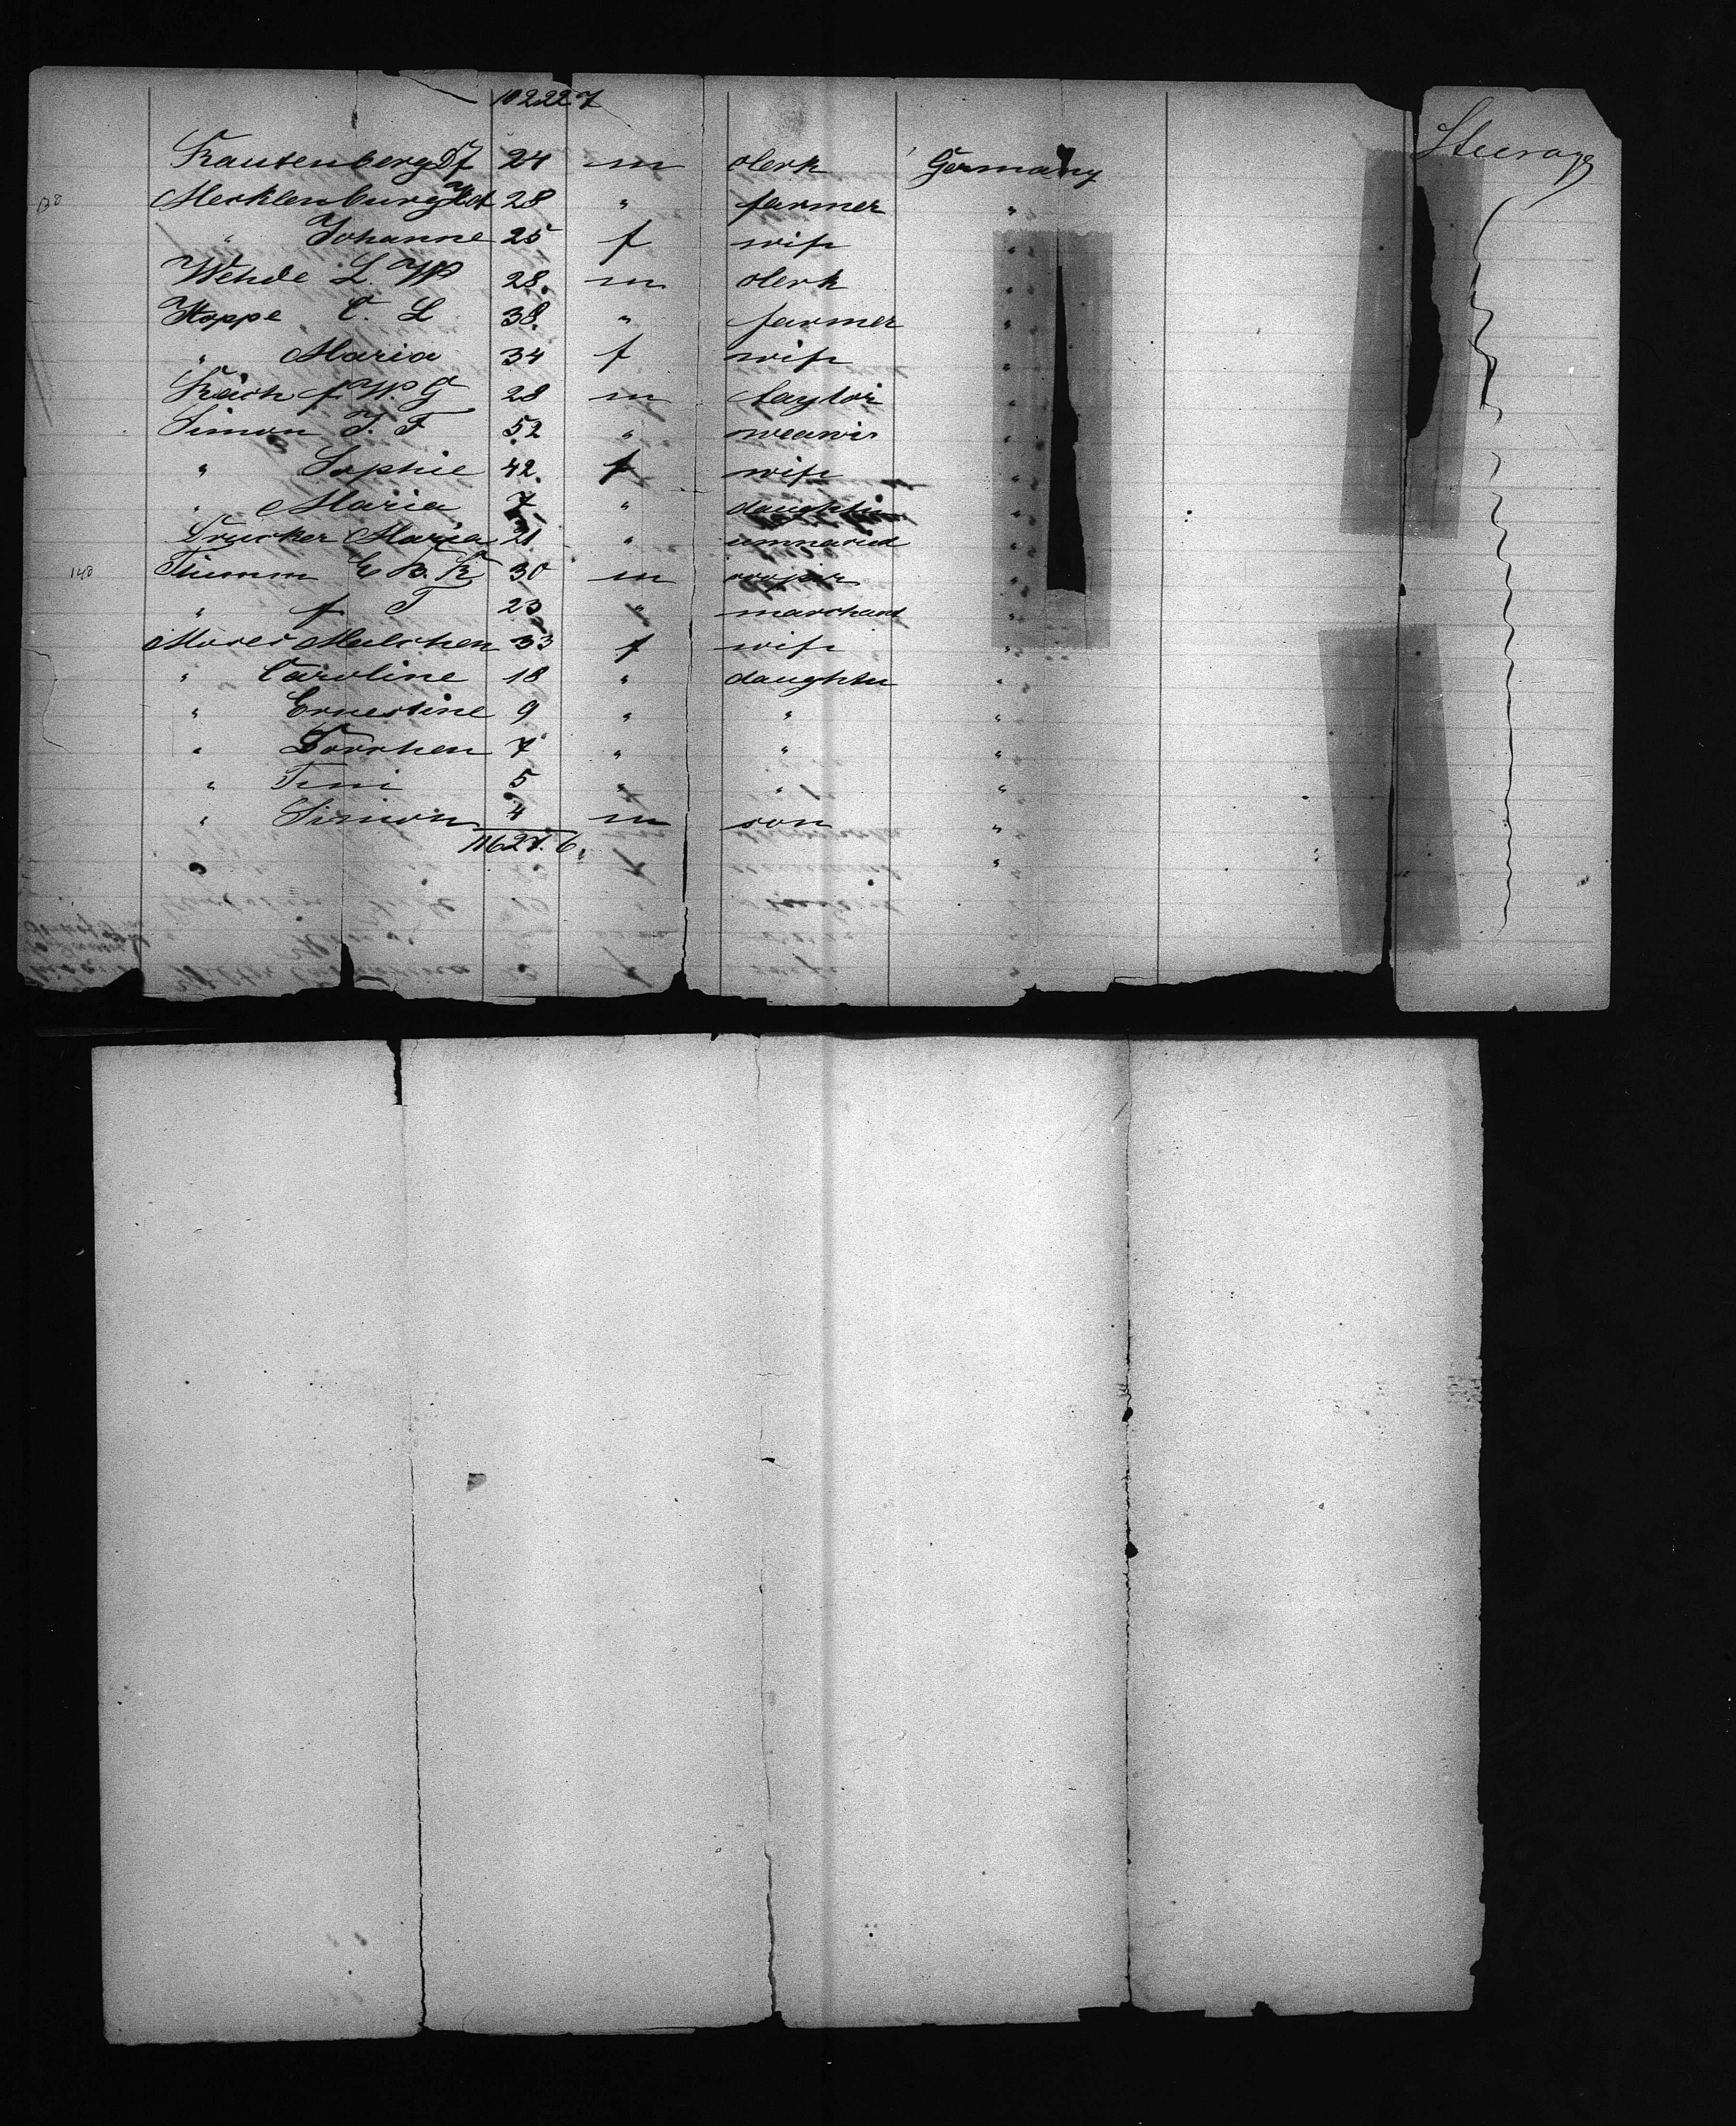 102227
Rautenberg D J 24 m clerk Germany Steerage
Mecklenburg Hch 28 " farmer "
" Johanne 25 f wife "
Wehde L. W 28. m clerk "
Hoppe C. L 38. " farmer "
" Maria 34 f wife "
f W. G 28 m taylor "
Simon J. F 52 " "
" Sophie 42. f wife "
" Maria 7 " daughter "
Maria 21 " unmaried "
140 Thumm E B. R 30 m "
" f T 23 " marchand "
Moses Malchen 33 f wife "
" Caroline 18 " daughter "
" Ernestine 9 " " "
" Dorchen 7 " " "
" Tini 5 " " "
" Simon 4 m son "
11627.6. "